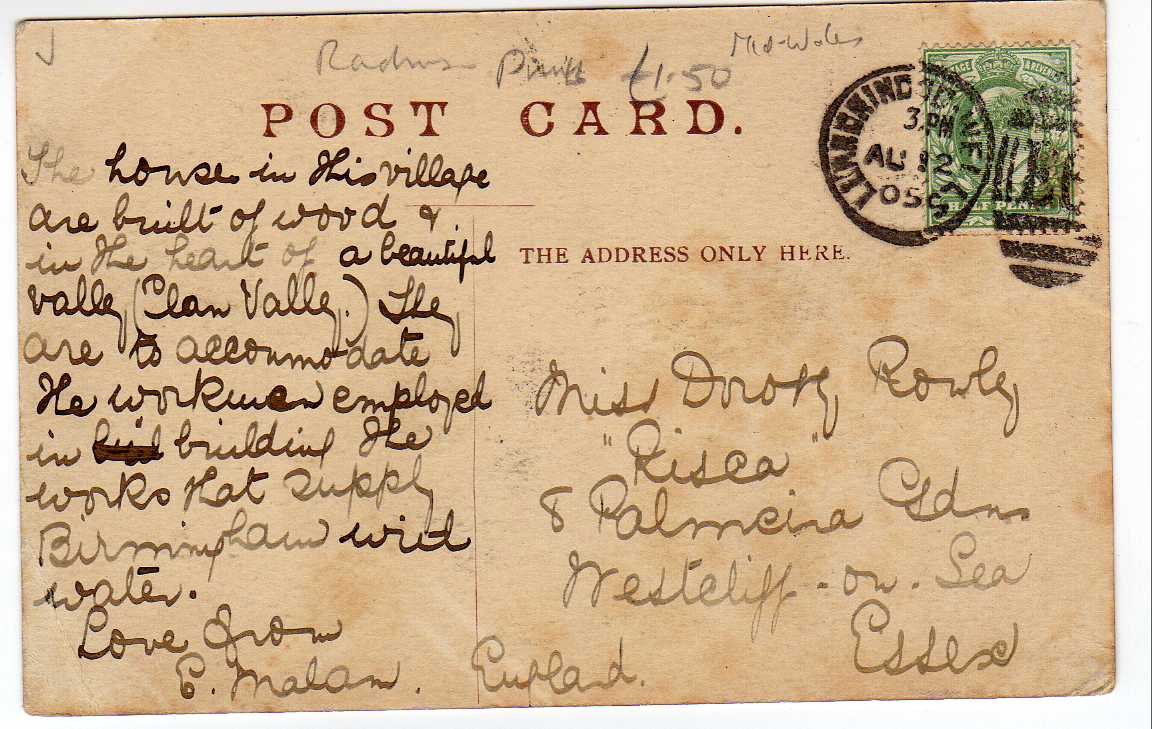 Mid-Wales
£1.50
POST CARD.
3 PM
AU 12
05
HALF PENNY
The houses in this village
are built of wood &
in the heart of a beautiful
valley (Elan Valley.) They
are to accommodate
the workmen employed
in building the
works that supply
Birmingham with
water.
Love from
E. Malam.
THE ADDRESS ONLY HERE.
Miss Dorothy Rowley
"Risca"
8 Palmeira Gdns
Westcliff-on-Sea
Essex
England.